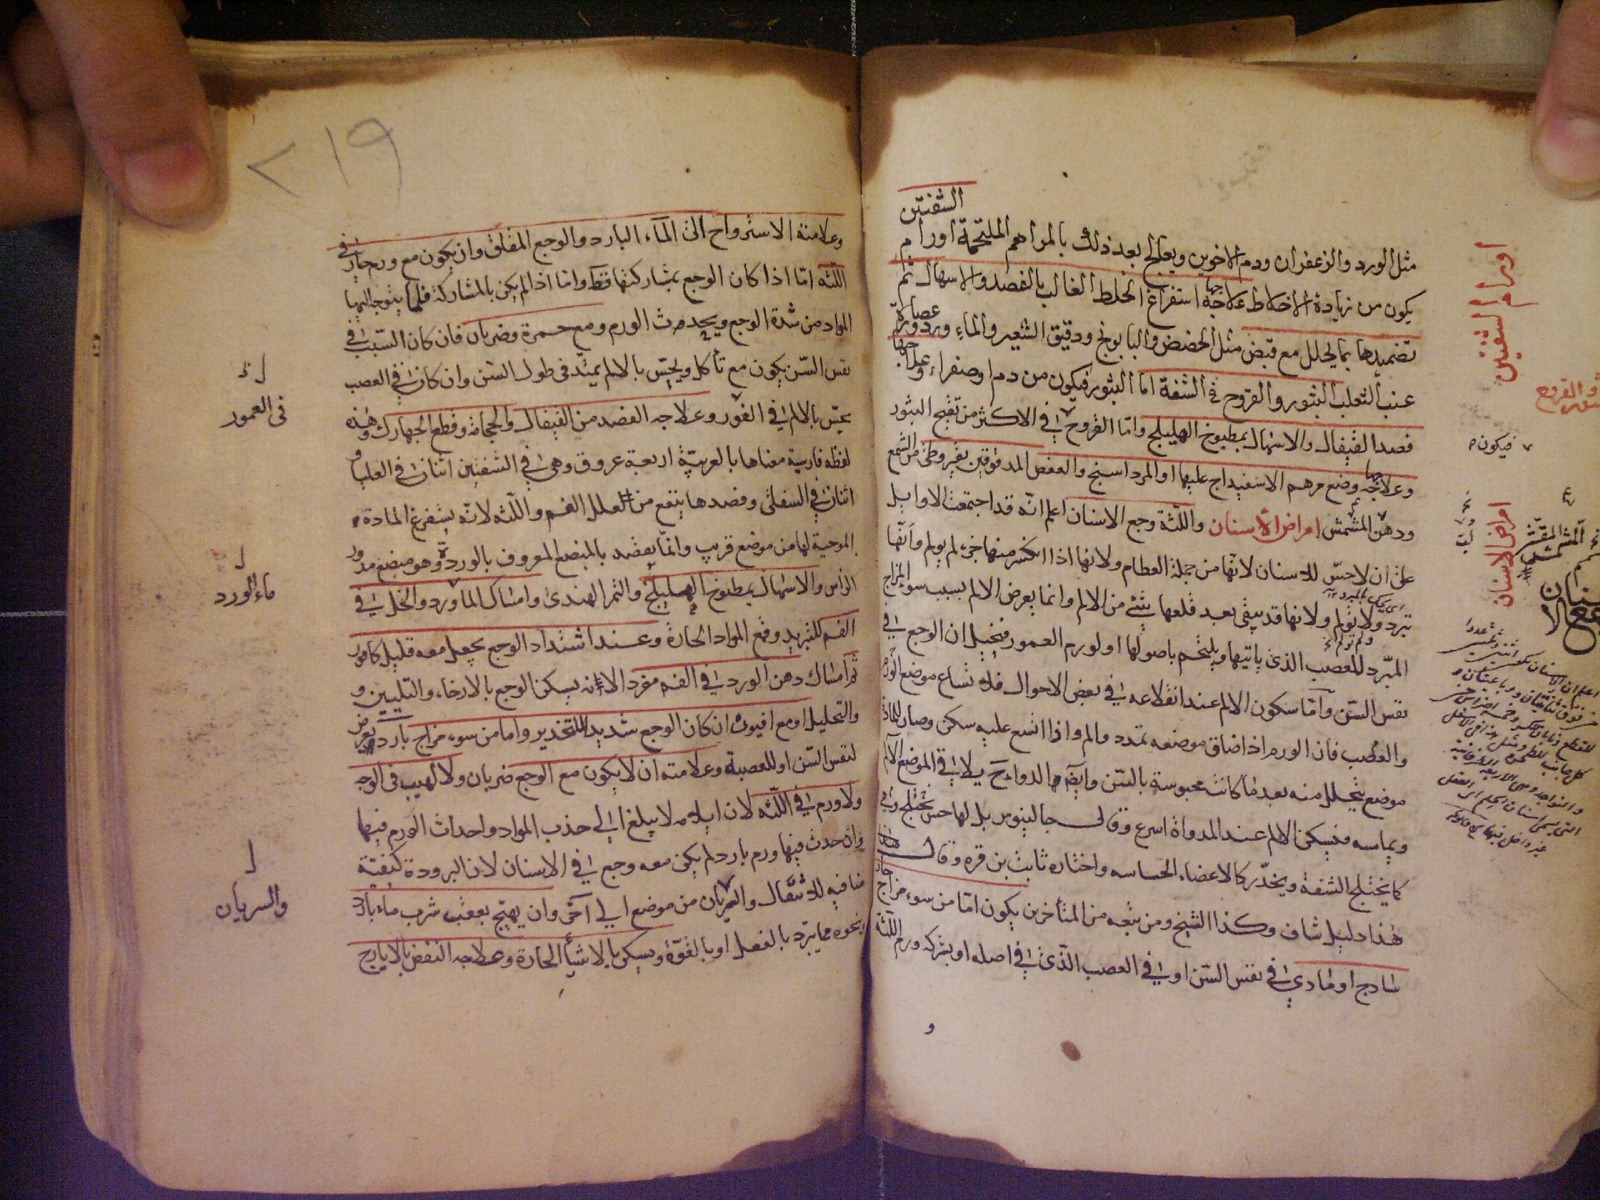 الشفتين
مثل الورد والزعفران ودم الاخوين ويعالج بعد ذلك بالمراهم الملتحمة اورام
يكون من زيادة الاخلاط علاجها استفراغ الخلط الغالب بالفصد والاسهال ثم
تضميدها بما يحلل مع قبض مثل الحضض والبابونج ودقيق الشعير والماء ورد وعصارة
عنب الثعلب البثور والقروح في الشفة اما البثور فيكون من دم او صفراء وعلاجها
فصد القيفال والاسهال بمطبوخ الهليلج واما القروح في الاكثر من تقيح البثور
وعلاجها وضع مرهم الاسفيداج عليها او المرداسنج والعفص المدقوقين بقيروطي من الشمع
ودهن المشمش امراض الاسنان واللثة وجع الاسنان اعلم انه قد اجتمعت الاوايل
على ان لا حس للاسنان لانها من جملة العظام ولانها اذا انكسر منها جزء لم يولم وانها
تبرد ولا تولم ولانها قد يبقى بعد قلعها شئ من الالم وانما يعرض الالم بسبب سوء المزاج
المبرد للعصب الذي ياتيها ويلتحم باصولها او لورم العمور فيخيل ان الوجع في
نفس السن واما سكون الالم عند انقلاعه في بعض الاحوال فلاتساع موضع الورم
والعصب فان الورم اذا ضاق موضعه تمدد والم واذا اتسع عليه سكن وصار للمادة
موضع يتحلل منه بعد ما كانت محبوسة بالسن وايضا الدواء ح يلاقي الموضع الالم
ويماسه فيسكن الالم عند المداواة اسرع وقال جالينوس بل لها حس يختلج
كما يختلج الشفة ويخدر كالاعضاء الحساسه واختاره ثابت بن قره وقال
هذا دليل شاف وكذا الشيخ ومن تبعه من المتأخرين يكون اما من سوء مزاج حار
ساذج او مادي في نفس السن او في العصب الذي في اصله او بشركة ورم اللثة
و
اورام الشفتين
فيكون
امراض الاسنان
٢١٩
وعلامته الاسترواح الى الماء البارد والوجع المقلق وان يكون مع ورم حار في
اللثه اما اذا كان الوجع بمشاركتها فقط واما اذا لم يكن بالمشاركة فلما يتوجه اليها
المواد من شدة الوجع ويحدث الورم ومع حمرة وضربان فان كان السبب في
نفس السن يكون مع تأكل ويحس بالالم يمتد في طول السن وان كان في العصب
يحس بالالم في الغور وعلاجه الفصد من القيفال والحجامة وقطع الجهارك وهذه
لفظة فارسية معناها بالعربية اربعة عروق وهي في الشفتين اثنان في العليا و
اثنان في السفلى وفصدها ينفع من العلل الفم واللثه لانه يستفرغ المادة
الموجبة لها من موضع قريب وانما يفصد بالمبضع المعروف بالوردة وهو مبضع مدور
الراس والاسهال بمطبوخ الهليلج والتمر الهندي وامساك الماورد والخل في
الفم للتبريد وقمع المواد الحارة وعند اشتداد الوجع يجعل معه قليل كافور
ثم امساك دهن الورد في الفم مفردا لانه يسكن الوجع بالارخاء والتليين و
والتحليل او مع افيون ان كان الوجع شديد للتخدير واما من سوء مزاج بارد يعرض
لنفس السن او للعصبة وعلامته ان لا يكون مع الوجع ضربان ولا لهيب في الوجه
ولا ورم في اللثة لان ايلامه لا يبلغ الى جذب المواد واحداث الورم فيها
وان حدث فيها ورم بارد لم يكن معه وجع في الاسنان لان البرودة كيفية
منافيه للانتقال والسريان من موضع الى آخر وان يهيج بعقب شرب ماء بارد
ونحوه مما يبرد بالفعل او بالقوة ويسكن بالاشيأ الحارة وعلاجه النفض بالايارج
في العمور
ماء الورد
والسريان